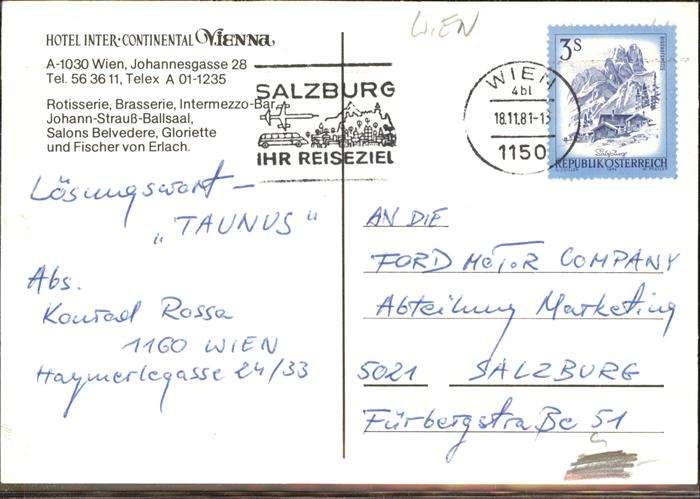 WIEN
HOTEL INTER·CONTINENTAL VIENNA
A-1030 Wien, Johannesgasse 28
Tel. 56 36 11, Telex A 01-1235
Rotisserie, Brasserie, Intermezzo-Bar,
Johann-Strauß-Ballsaal,
Salons Belvedere, Gloriette
und Fischer von Erlach.
SALZBURG
IHR REISEZIEL
WIEN
4bl
18.11.81-13
1150
3 S
REPUBLIK ÖSTERREICH
Lösungswort –
„TAUNUS“
Abs.
Konrad Rossa
1160 WIEN
Haymerlegasse 24/33
AN DIE
FORD MOTOR COMPANY
Abteilung Marketing
5021 SALZBURG
Fürbergstraße 51